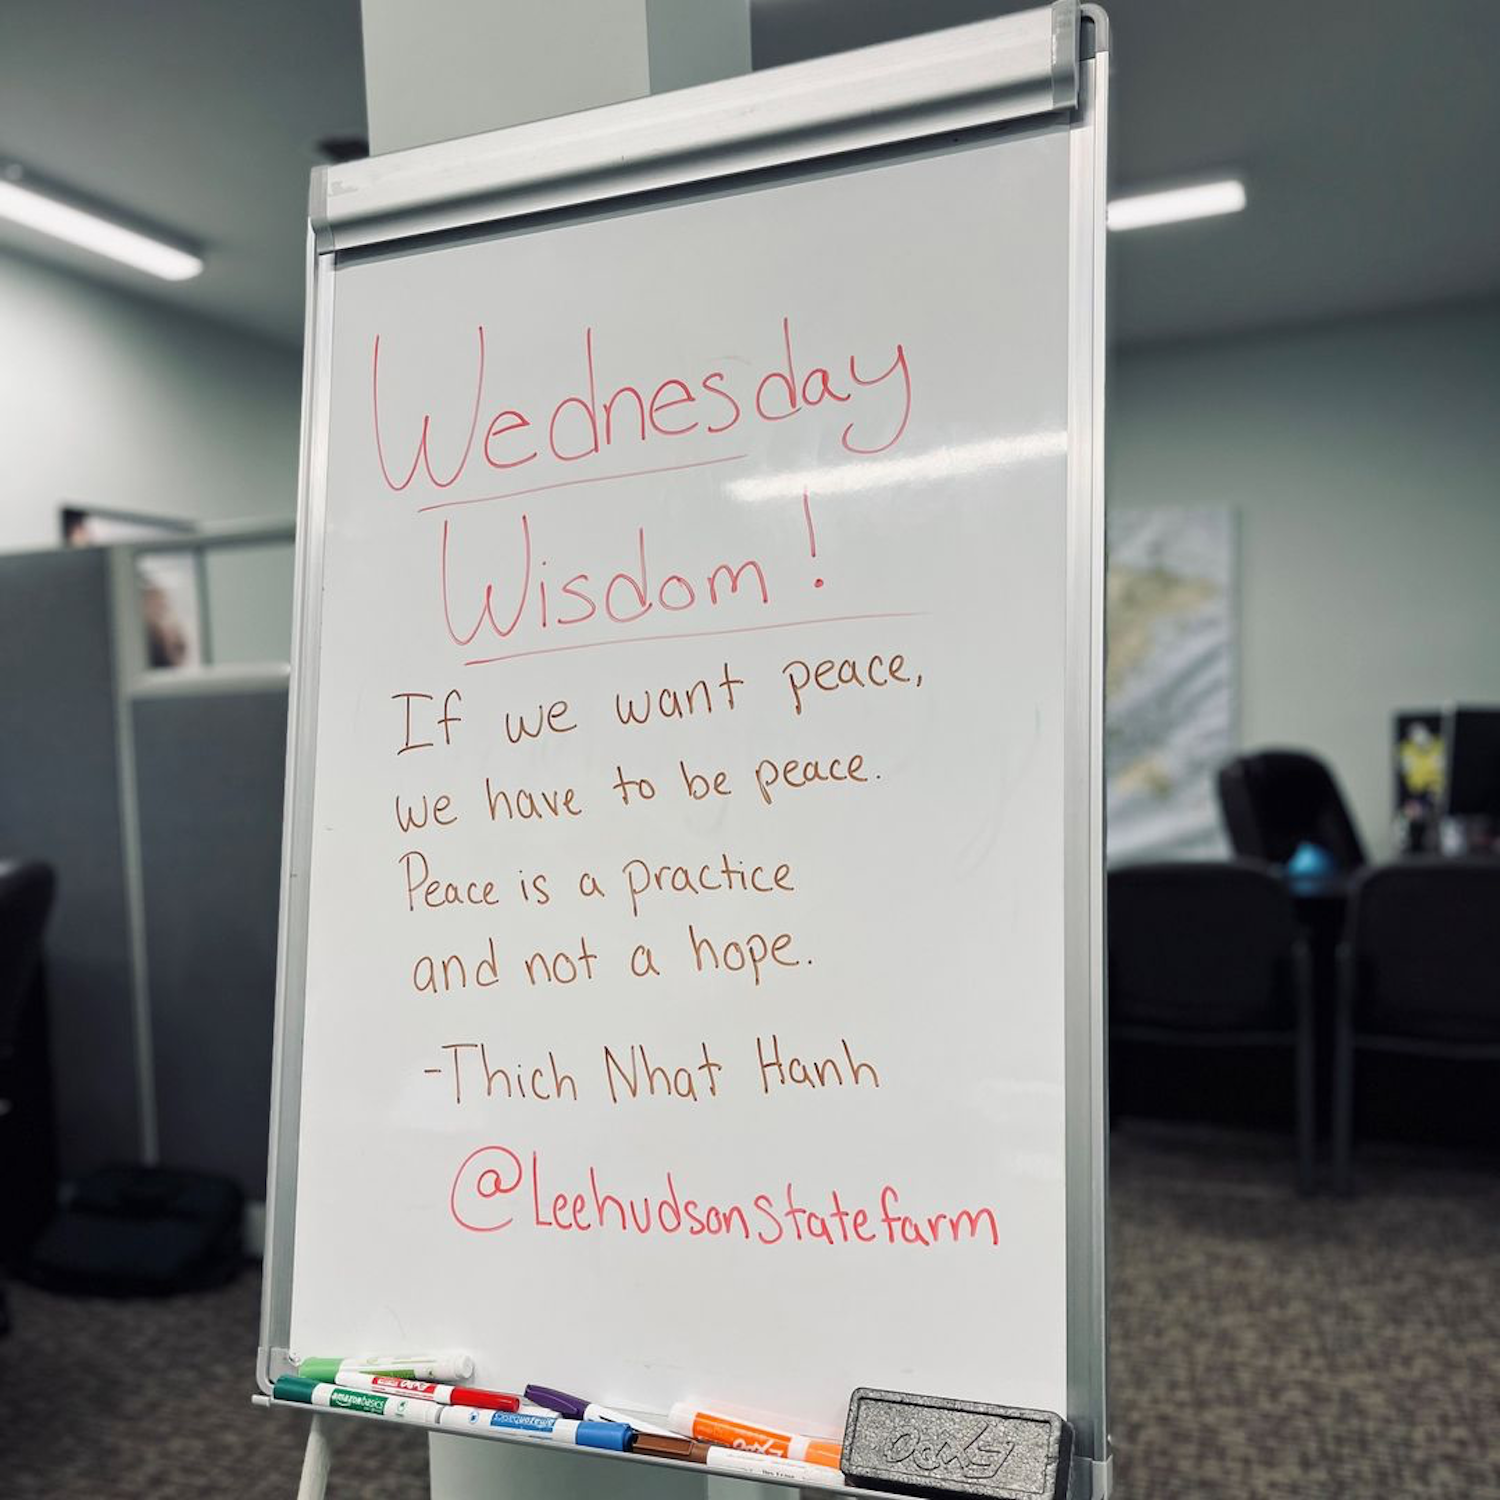 Wednesday
Wisdom!
If we want peace,
we have to be peace.
Peace is a practice
and not a hope.
-Thich Nhat Hanh
@Leehudsonstatefarm
amazonbasics
EXPO
EXPO